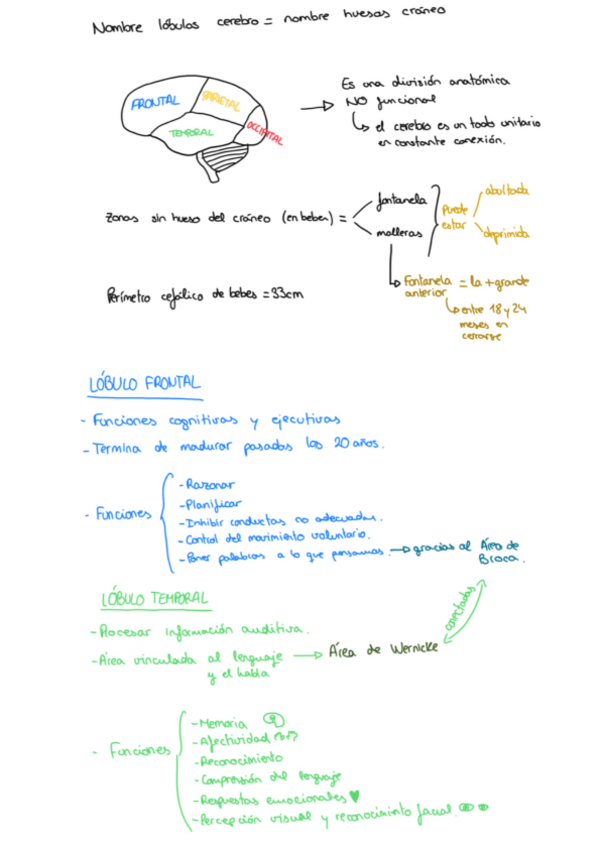 Nombre lóbulos cerebro = nombre huesos cráneo
FRONTAL
PARIETAL
TEMPORAL
OCCIPITAL
→ Es una división anatómica
NO funcional
↳ el cerebro es un todo unitario
en constante conexión.
Zonas sin hueso del cráneo (en bebes) =
fontanela
molleras
Puede
estar
abultada
deprimida
↳ Fontanela = la + grande
anterior
↳ entre 18 y 24
meses en
cerrarse
Perímetro cefálico de bebes = 33cm
LÓBULO FRONTAL
- Funciones cognitivas y ejecutivas
- Termina de madurar pasados los 20 años.
- Funciones
- Razonar
- Planificar
- Inhibir conductas no adecuadas.
- Control del movimiento voluntario.
- Poner palabras a lo que pensamos. → gracias al Área de
Broca.
LÓBULO TEMPORAL
- Procesar información auditiva.
- Área vinculada al lenguaje → Área de Wernicke
y el habla
conectadas
- Funciones
- Memoria
- Afectividad
- Reconocimiento
- Comprensión del lenguaje
- Respuestas emocionales ♥
- Percepción visual y reconocimiento facial.